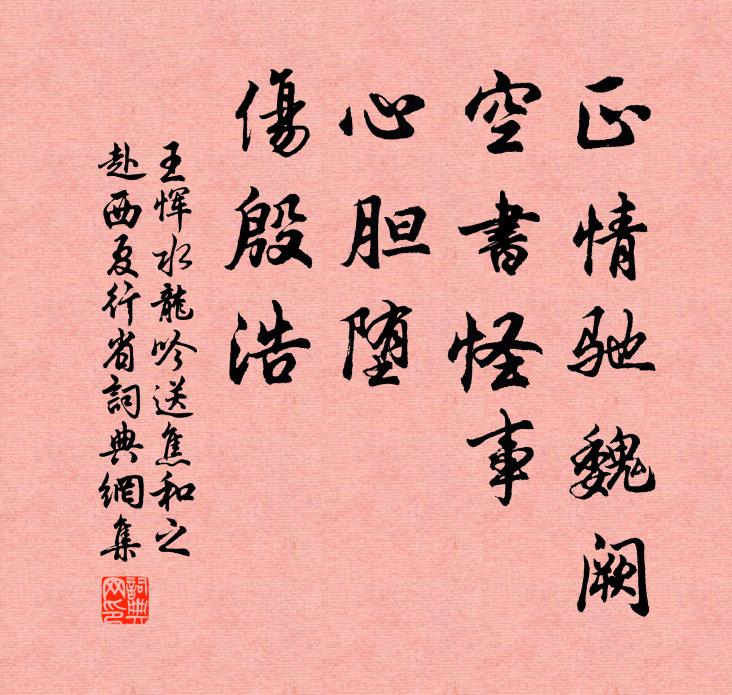 正情驰魏阙
空書怪事
心胆堕
傷殷浩
王恽水龍吟送焦和之
赴西夏行省詞典網集
詞典
网印